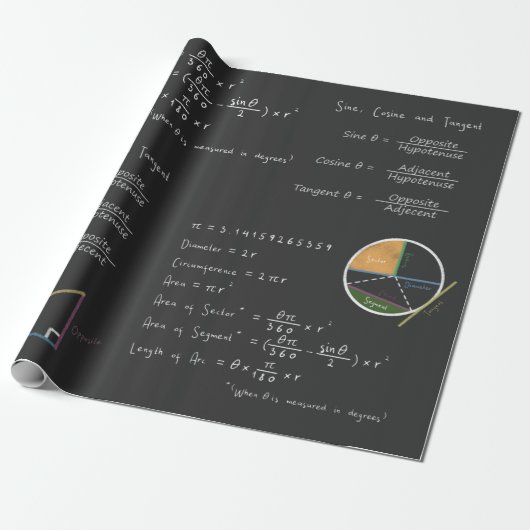 θπ/360 × r²
= (θπ/360 - sinθ/2) × r²
× π/180 × r
(When θ is measured in degrees)
Tangent
Opposite
Hypotenuse
Adjacent
Hypotenuse
Opposite
Opposite
Sine, Cosine and Tangent
Sine θ = Opposite/Hypotenuse
Cosine θ = Adjacent/Hypotenuse
Tangent θ = Opposite/Adjecent
π = 3.14159265359
Diameter = 2r
Circumference = 2πr
Area = πr²
Area of Sector* = θπ/360 × r²
Area of Segment* = (θπ/360 - sinθ/2) × r²
Length of Arc = θ × π/180 × r
*(When θ is measured in degrees)
Sector
Diameter
Segment
Tangent